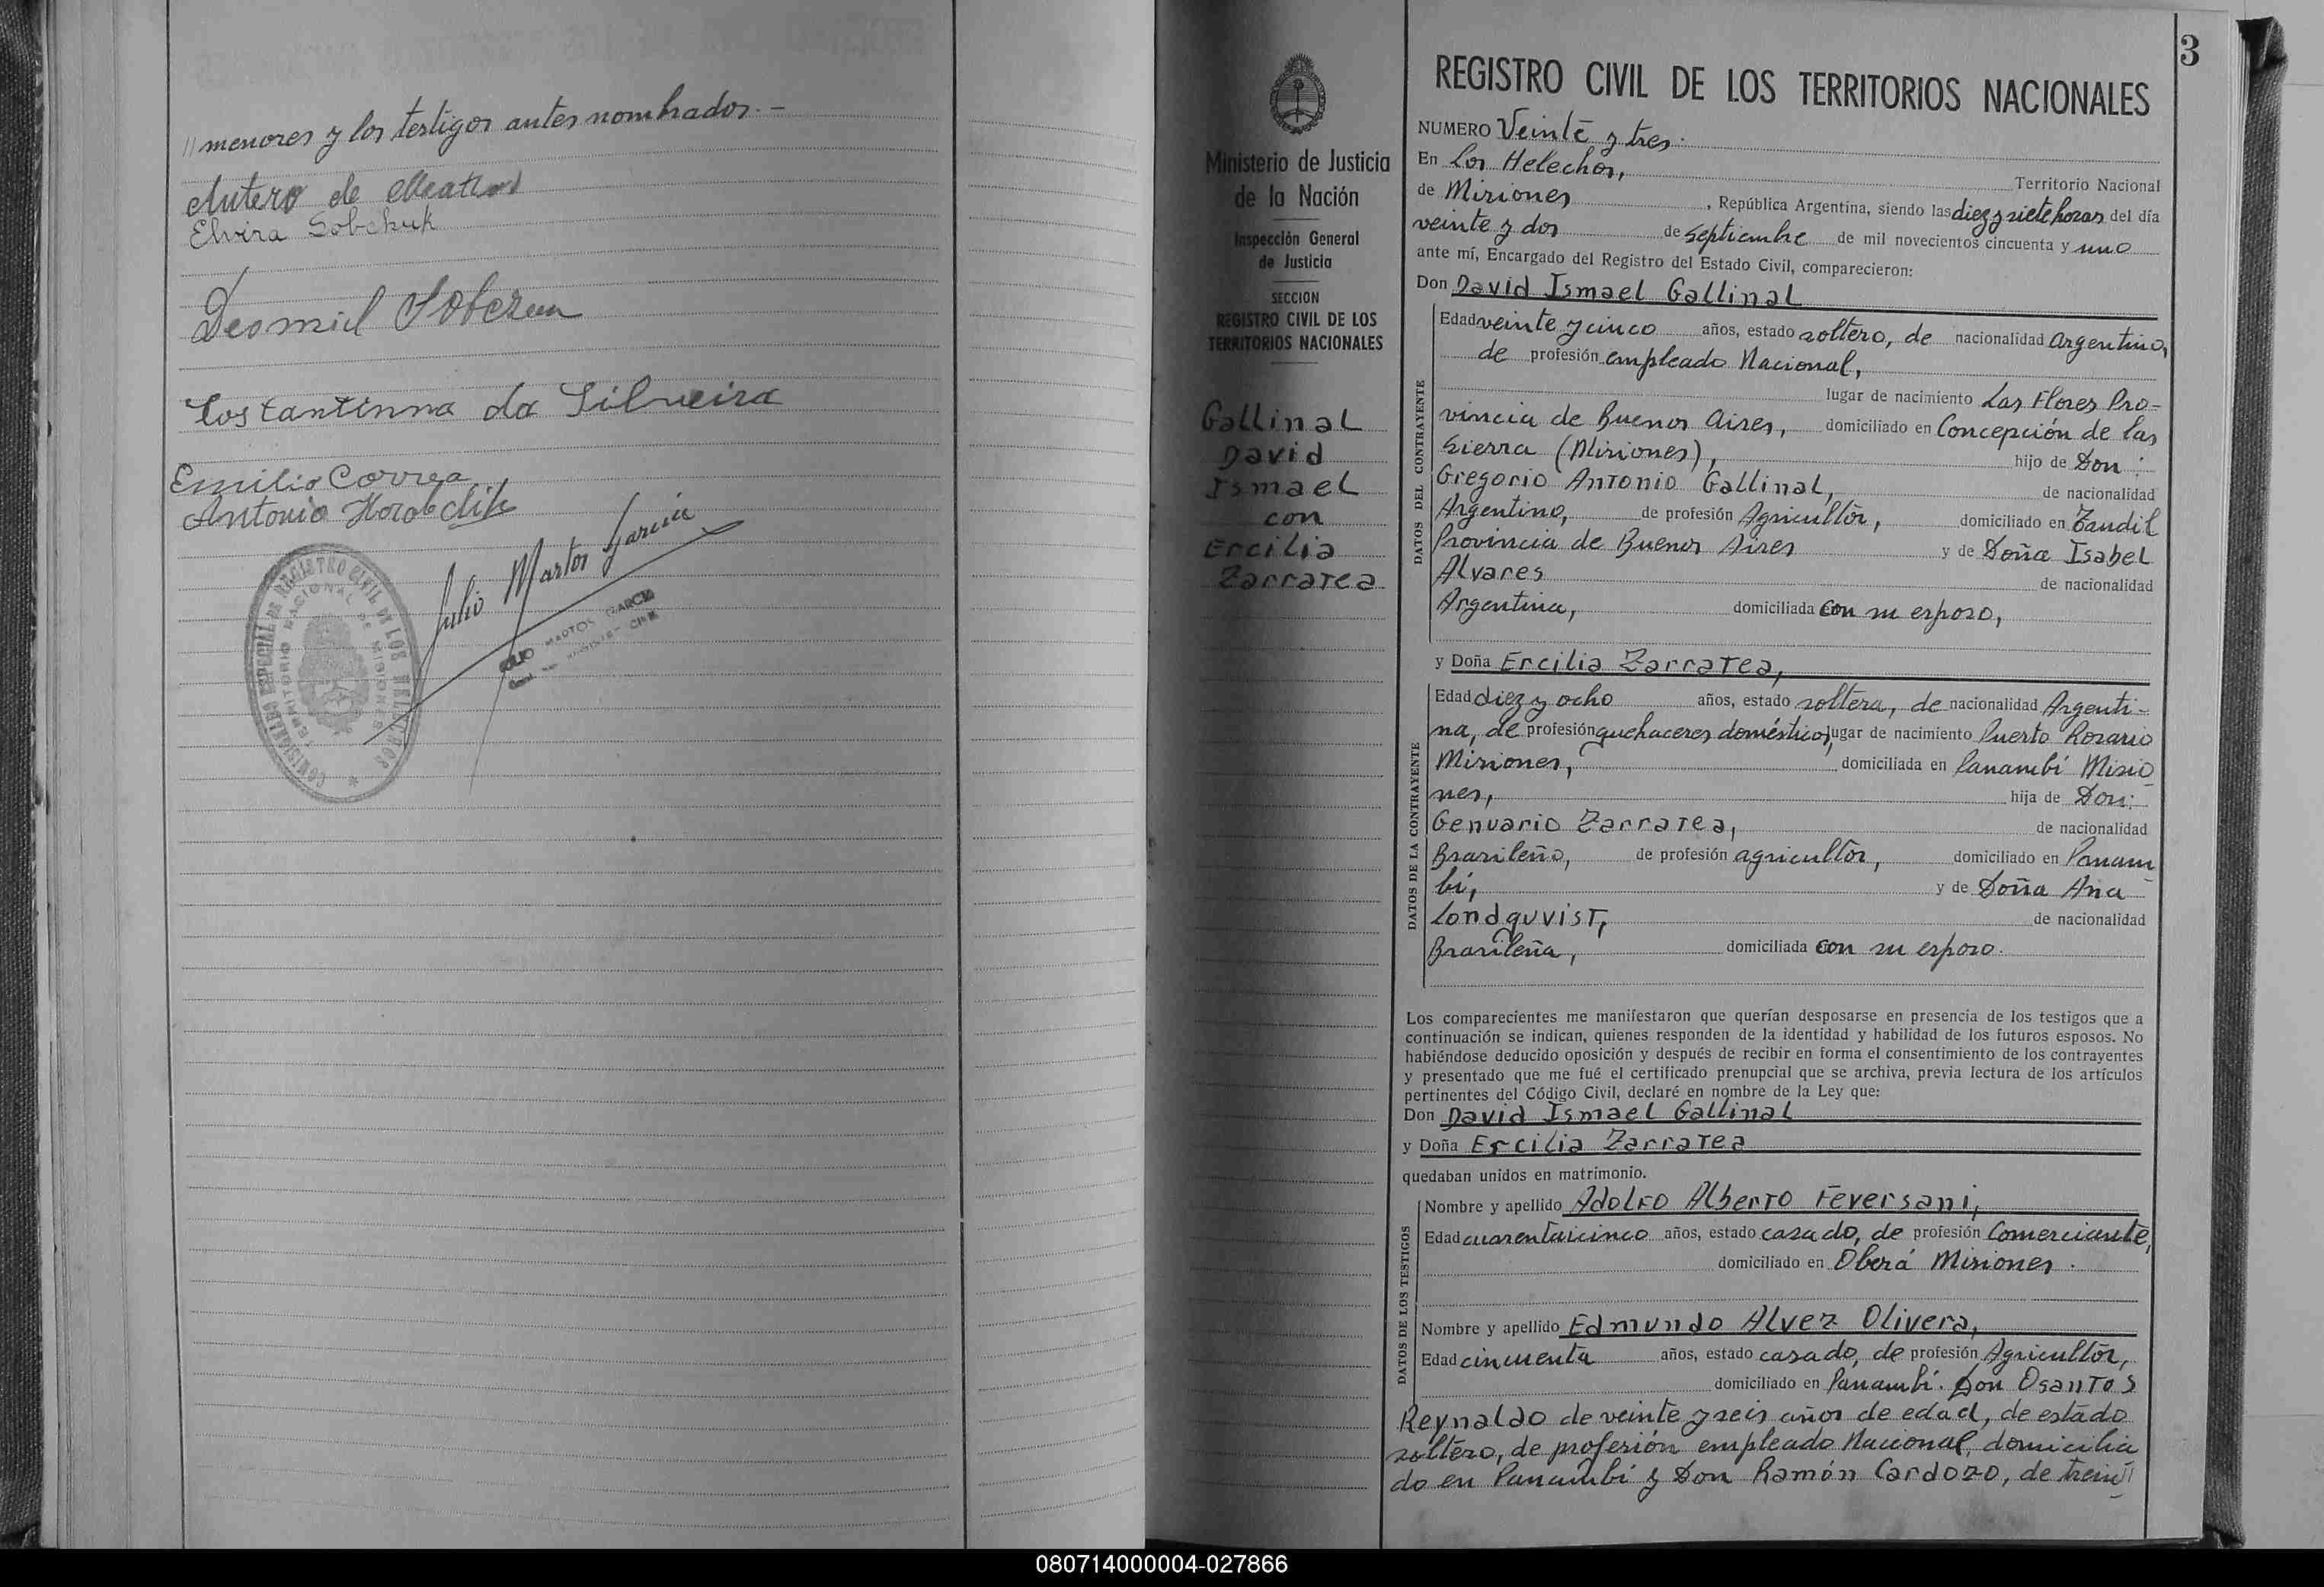 // menores y los testigos antes nombrados.-
Antero de
Elvira Sobchuk
Costantinna da Silveira
Emilio Correa
Antonio
Julio Martos Garcia
JULIO MARTOS GARCIA
COMISARIA ESPECIAL DE REGISTRO CIVIL DE LOS HELECHOS
TERRITORIO NACIONAL DE MISIONES
3
Ministerio de Justicia
de la Nación
Inspección General
de Justicia
SECCION
REGISTRO CIVIL DE LOS
TERRITORIOS NACIONALES
Gallinal
David
Ismael
con
Ercilia
Zarratea
REGISTRO CIVIL DE LOS TERRITORIOS NACIONALES
NUMERO Veinte y tres.
En Los Helechos, Territorio Nacional
de Misiones, República Argentina, siendo las diez y siete horas del día
veinte y dos de septiembre de mil novecientos cincuenta y uno
ante mí, Encargado del Registro del Estado Civil, comparecieron:
Don David Ismael Gallinal
DATOS DEL CONTRAYENTE
Edad veinte y cinco años, estado soltero, de nacionalidad Argentino,
de profesión empleado Nacional,
lugar de nacimiento Las Flores Pro-
vincia de Buenos Aires, domiciliado en Concepción de las
Sierra (Misiones), hijo de Don:
Gregorio Antonio Gallinal, de nacionalidad
Argentino, de profesión Agricultor, domiciliado en Tandil
Provincia de Buenos Aires y de Doña Isabel
Alvares de nacionalidad
Argentina, domiciliada con su esposo,
y Doña Ercilia Zarratea,
DATOS DE LA CONTRAYENTE
Edad diez y ocho años, estado soltera, de nacionalidad Argenti-
na, de profesión quehaceres domésticos, lugar de nacimiento Puerto Rosario
Misiones, domiciliada en Panambí Misio
nes, hija de Don:
Genuario Zarratea, de nacionalidad
Brasileño, de profesión agricultor, domiciliado en Panam
bí, y de Doña Ana
Londquvist, de nacionalidad
Brasileña, domiciliada con su esposo.
Los comparecientes me manifestaron que querían desposarse en presencia de los testigos que a
continuación se indican, quienes responden de la identidad y habilidad de los futuros esposos. No
habiéndose deducido oposición y después de recibir en forma el consentimiento de los contrayentes
y presentado que me fué el certificado prenupcial que se archiva, previa lectura de los artículos
pertinentes del Código Civil, declaré en nombre de la Ley que:
Don David Ismael Gallinal
y Doña Ercilia Zarratea
quedaban unidos en matrimonio.
DATOS DE LOS TESTIGOS
Nombre y apellido Adolfo Alberto Feversani,
Edad cuarentaicinco años, estado casado, de profesión Comerciante,
domiciliado en Oberá Misiones.
Nombre y apellido Edmundo Alvez Olivera,
Edad cincuenta años, estado casado, de profesión Agricultor,
domiciliado en Panambí. Don Osantos
Reynaldo de veinte y seis años de edad, de estado
soltero, de profesión empleado Nacional, domicilia
do en Panambí y Don Ramón Cardozo, de trein//
080714000004-027866